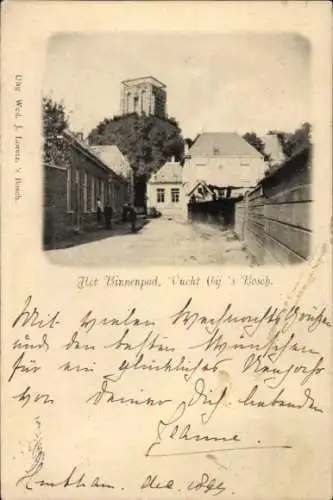 Uitg. Wed. J. Lorenz, 's Bosch.
Het Binnenpad, Vucht (bij 's Bosch.
Mit vielen Weihnachts Grüßen
und den besten Wünschen
für ein glückliches Neujahr
von deiner Dich liebenden
Johanne